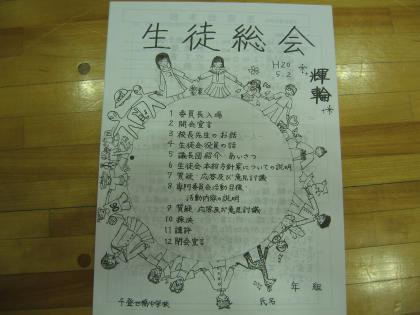 生徒総会
H20
5.2
輝輪
1 委員長入場
2 開会宣言
3 校長先生のお話
4 生徒会役員の話
5 議長団紹介・あいさつ
6 生徒会本部方針案についての説明
7 質疑・応答及び意見討議
8 専門委員会活動目標・
活動内容の説明
9 質疑・応答及び意見討議
10 採決
11 講評
12 閉会宣言
年 組
氏名